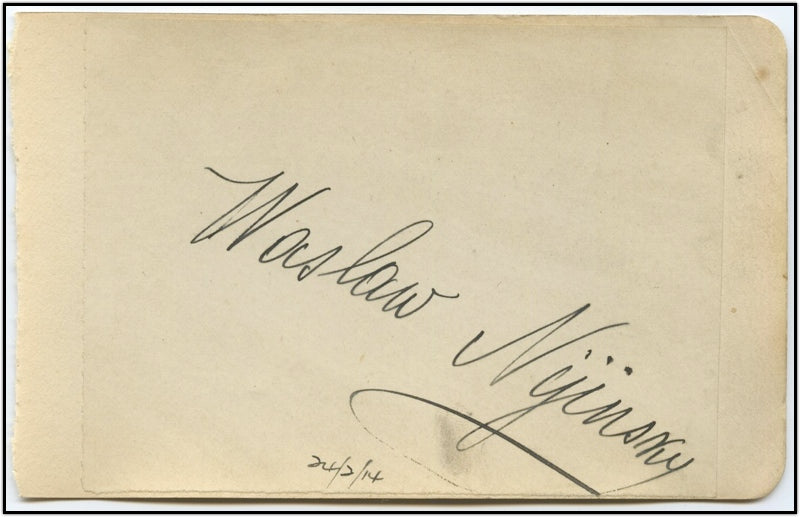 Waslaw Nijinsky
24/2/14